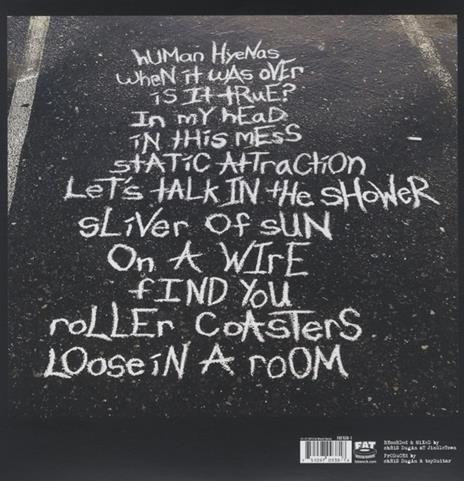 HUMAN HYENAS
WHEN it WAS OVEr
iS It trUE?
In mY hEAD
iN tHiS mESS
StAtiC AttrActiOn
LEt'S tALK IN tHe SHOWeR
SLiVER OF SUN
On A WIrE
fIND YOU
roLLEr COASTERS
LOOSE iN A rOOM
FAT
RECORDED & MiXED by
CHRIS DUGAN AT JINGLETOWN
PRODUCED by
CHRIS DUGAN & TOYGUITAR